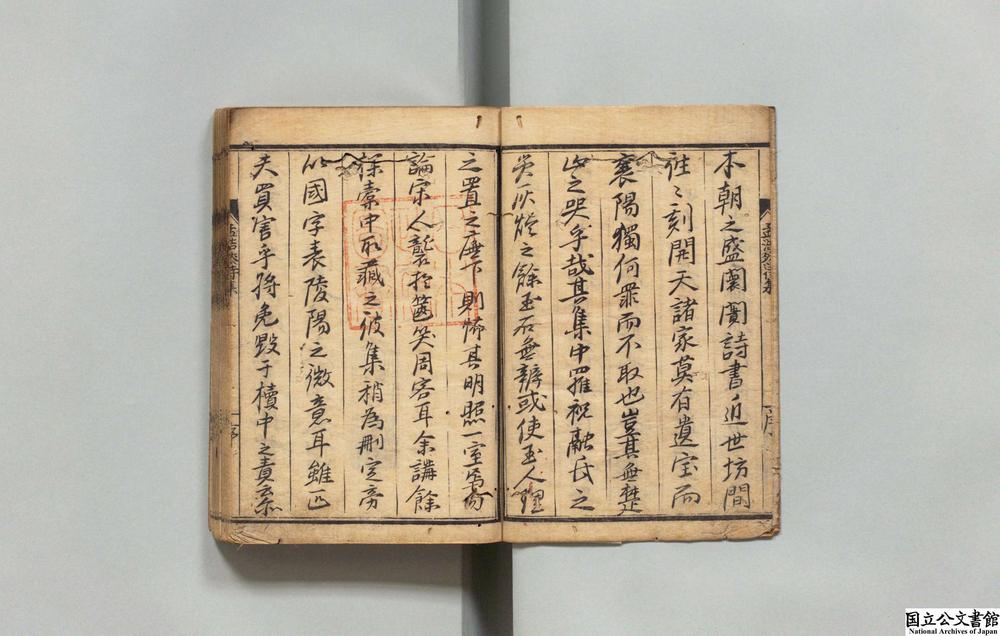 本朝之盛閭閻詩書近世坊間
往〻刻開天諸家莫有遺宝而
襄陽獨何罪而不取也豈其無楚
山之哭乎哉其集中罹祝融氏之
災灰燼之餘玉石無辨或使玉人理
之置之廡下則怖其明照一室
論宋人襲於篋笑周客耳余講餘
探索中所藏之彼集稍為刪定旁
以國字表陵陽之微意耳雖匹
夫買害乎将免毀于櫝中之責
孟浩然詩集
序
国立公文書館
National Archives of Japan